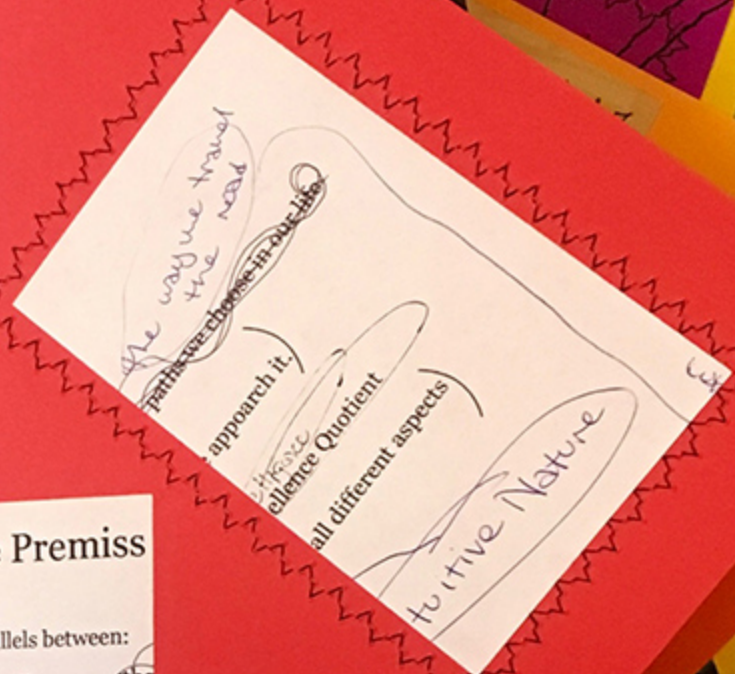 the way we travel
the road
paths we choose in our life.
appoarch it.
ellence Quotient
all different aspects
tuitive Nature
Premiss
llels between: